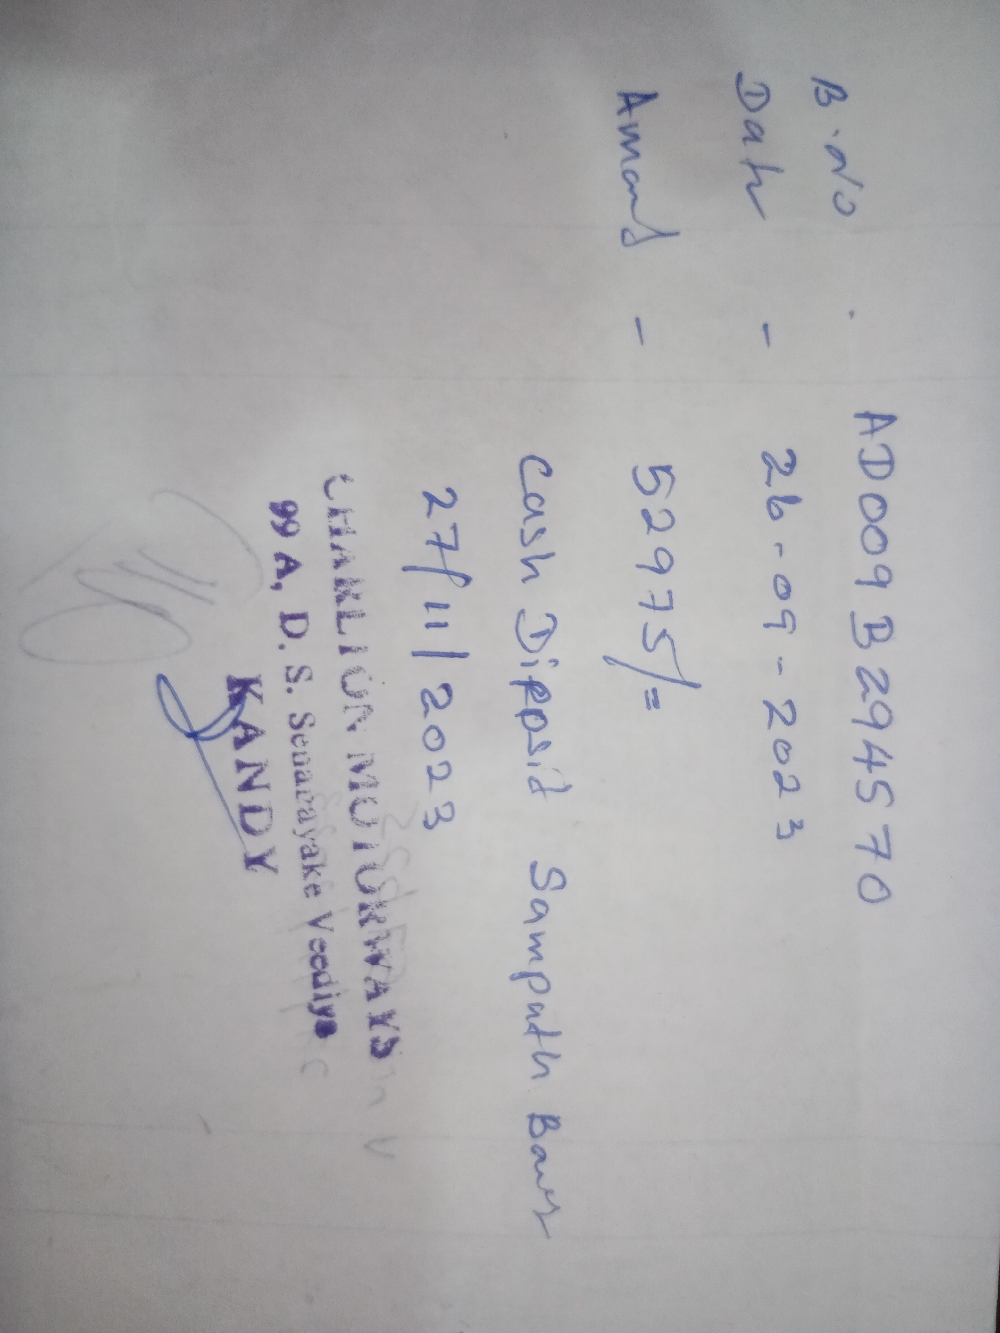 B.NO. AD009B294570
Date - 26-09-2023
Amount - 52975/=
Cash Diposid Sampath Bank
27/11/2023
CHAMLION MOTORWAYS
99 A, D. S. Senanayake Veediya
KANDY